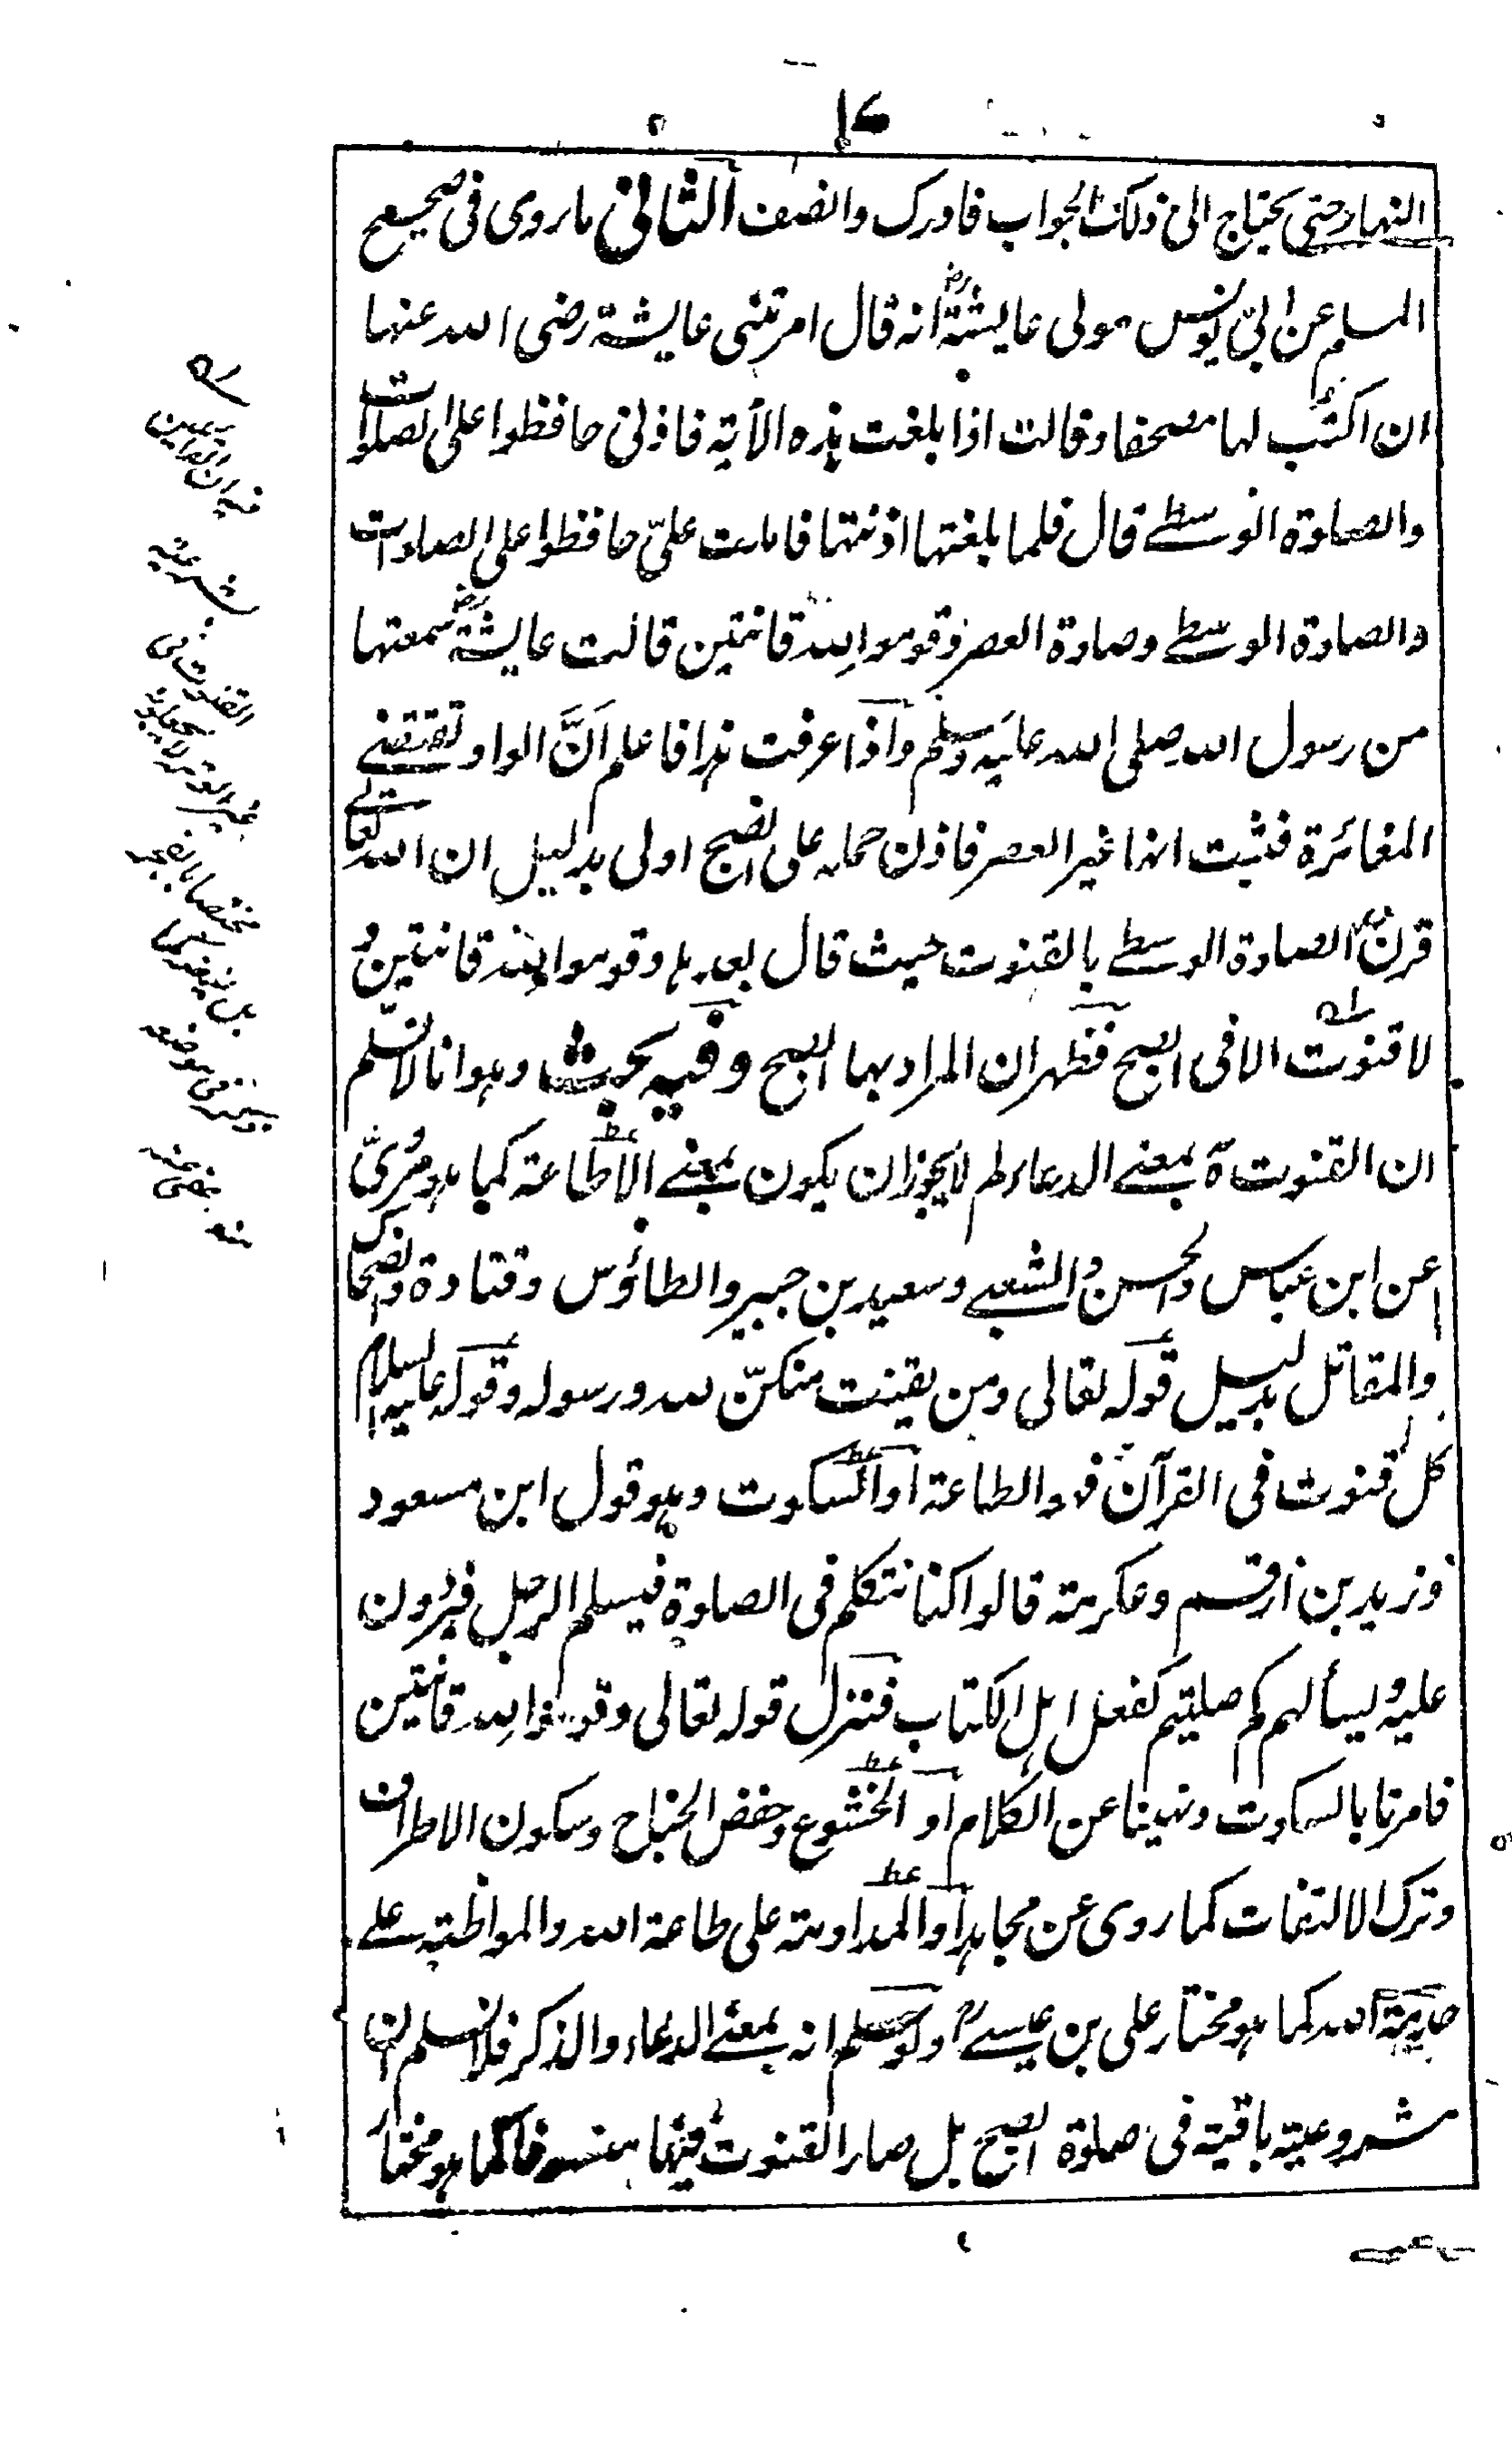 ١٤
النهار حتى يحتاج الى ذلك الجواب فادرك وانصف الثانى ما روى فى صحيح
المسلم عن ابى يونس مولى عايشةؓ انه قال امرتنى عايشة رضى الله عنها
ان اكتب لها مصحفا وقالت اذا بلغت هذه الآية فاذنى حافظوا على الصلوات
والصلوة الوسطے قال فلما بلغتها اذنتها فاملت علىّ حافظوا على الصلوات
والصلوة الوسطے وصلوة العصر وقوموا لله قانتين قالت عايشةؓ سمعتها
من رسول الله صلى الله عليه وسلم واذا عرفت هذا فاعلم اَنَّ الواو تقتضے
المغائرة فثبت انها غير العصر فاذن حمله على الصبح اولى بدليل ان الله تعالے
قرن الصلوة الوسطے بالقنوت حيث قال بعدها وقوموا لله قانتين و
لا قنوت الا فى الصبح فظهر ان المراد بها الصبح وفيه بحث وهو انا لا نسلم
ان القنوت ة بمعنے الدعاء لم لا يجوز ان يكون بمعنے الاطاعة كما هو مروىّ
عن ابن عباس والحسن والشعبے وسعيد بن جبير والطاؤس وقتادة والضحاك
والمقاتل بدليل قوله تعالى ومن يقنت منكنّ لله ورسوله وقوله عليه السلام
كل قنوت فى القرآن فهو الطاعة او السكوت وهو قول ابن مسعود
وزيد بن ارقم وعكرمة قالوا كنا نتكلم فى الصلوة فيسلم الرجل فيردون
عليه ويسألهم كم صليتم كفعل اهل الكتاب فنزل قوله تعالى وقوموا لله قانتين
فامرنا بالسكوت ونهينا عن الكلام او الخشوع وخفض الجناح وسكون الاطراف
وترك الالتفات كما روى عن مجاهد او المداومة على طاعة الله والمواظبة علے
خدمة الله كما هو مختار على بن عيسے ولو سلم انه بمعنے الدعاء والذكر فلا نسلم ان
مشروعيته باقية فى صلوة الصبح بل صار القنوت فيها منسوخا كما هو مختار
فيه ان القائلين
بشرعية
القنوت فى